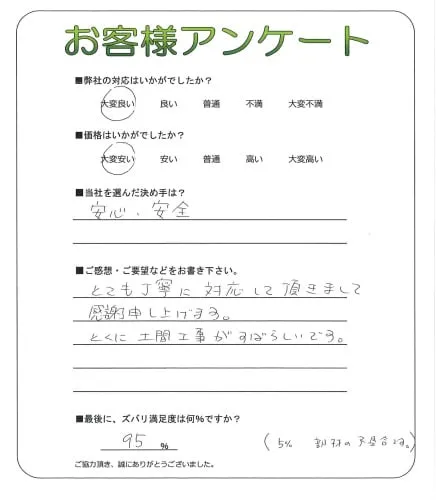 お客様アンケート
■弊社の対応はいかがでしたか？
大変良い 良い 普通 不満 大変不満
■価格はいかがでしたか？
大変安い 安い 普通 高い 大変高い
■当社を選んだ決め手は？
安心、安全
■ご感想・ご要望などをお書き下さい。
とても丁寧に対応して頂きまして
感謝申し上げます。
とくに土間工事がすばらしいです。
■最後に、ズバリ満足度は何%ですか？
95 %
(5% 部材の不具合です。)
ご協力頂き、誠にありがとうございました。